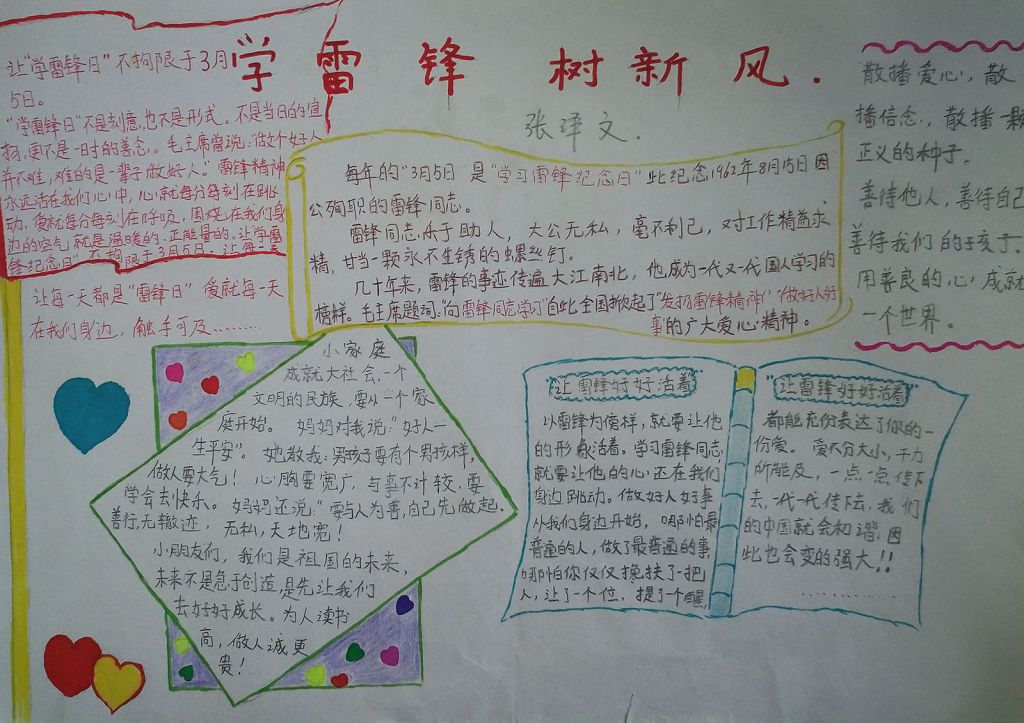 学雷锋 树新风.
张译文.
让“学雷锋日”不拘限于3月
5日。
“学雷锋日”不是刻意,也不是形式。不是当日的宣
扬,更不是一时的善念。毛主席曾说:“做个好人
并不难,难的是一辈子做好人”雷锋精神
永远活在我们心中,心,就每分每刻在跳
动,爱就每分每刻在呼吸,围绕在我们身
边的空气就是温暖的、正能量的。让学雷
锋纪念日”不拘限于3月5日。让每一天
让每一天都是“雷锋日”爱就每一天
在我们身边,触手可及………
每年的“3月5日”是“学习雷锋纪念日”此纪念1962年8月15日因
公殉职的雷锋同志。
雷锋同志乐于助人,大公无私,毫不利己,对工作精益求
精,甘当一颗永不生锈的螺丝钉。
几十年来,雷锋的事迹传遍大江南北,他成为一代又一代国人学习的
榜样。毛主席题词:“向雷锋同志学习”自此全国掀起了“发扬雷锋精神”“做好人好
事”的广大爱心精神。
散播爱心,散
播信念,散播一颗
正义的种子。
善待他人,善待自己
善待我们的孩子、
用善良的心成就
一个世界。
小家庭
成就大社会,一个
文明的民族,要从一个家
庭开始。妈妈对我说:“好人一
生平安”。她教我:男孩子要有个男孩样,
做人要大气!心胸要宽广,与事不计较,要
学会去快乐。妈妈还说:“要与人为善,自己先做起。
善行无辙迹,无私,天地宽!
小朋友们,我们是祖国的未来,
未来不是急于创造,是先让我们
去好好成长。为人读书
高,做人诚更
贵!
让雷锋好好活着
以雷锋为傍样,就要让他
的形象活着。学习雷锋同志,
就要让他的心还在我们
身边跳动。做好人好事
从我们身边开始,哪怕最
普通的人,做了最普通的事,
哪怕你仅仅搀扶了一把
人,让了一个位,提了一个醒,
让雷锋好好活着
都能充份表达了你的一
份爱。爱不分大小,千力
所能及,一点一点传下
去,一代一代传下去,我们
的中国就会和谐,因
此也会变的强大!!
…………